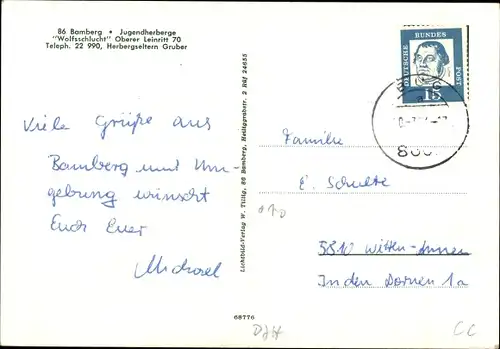 86 Bamberg • Jugendherberge
"Wolfsschlucht" Oberer Leinritt 70
Teleph. 22 990, Herbergseltern Gruber
DEUTSCHE BUNDESPOST
15
Viele Grüße aus
Bamberg und Um-
gebung wünscht
Euch Euer
Michael
Lichtbild-Verlag W. Tillig, 86 Bamberg, Heiliggrabstr. 2 Ruf 24655
Familie
E. Schulte
5810 Witten-Annen
In den Dornen 1a
68776
DJH
CC